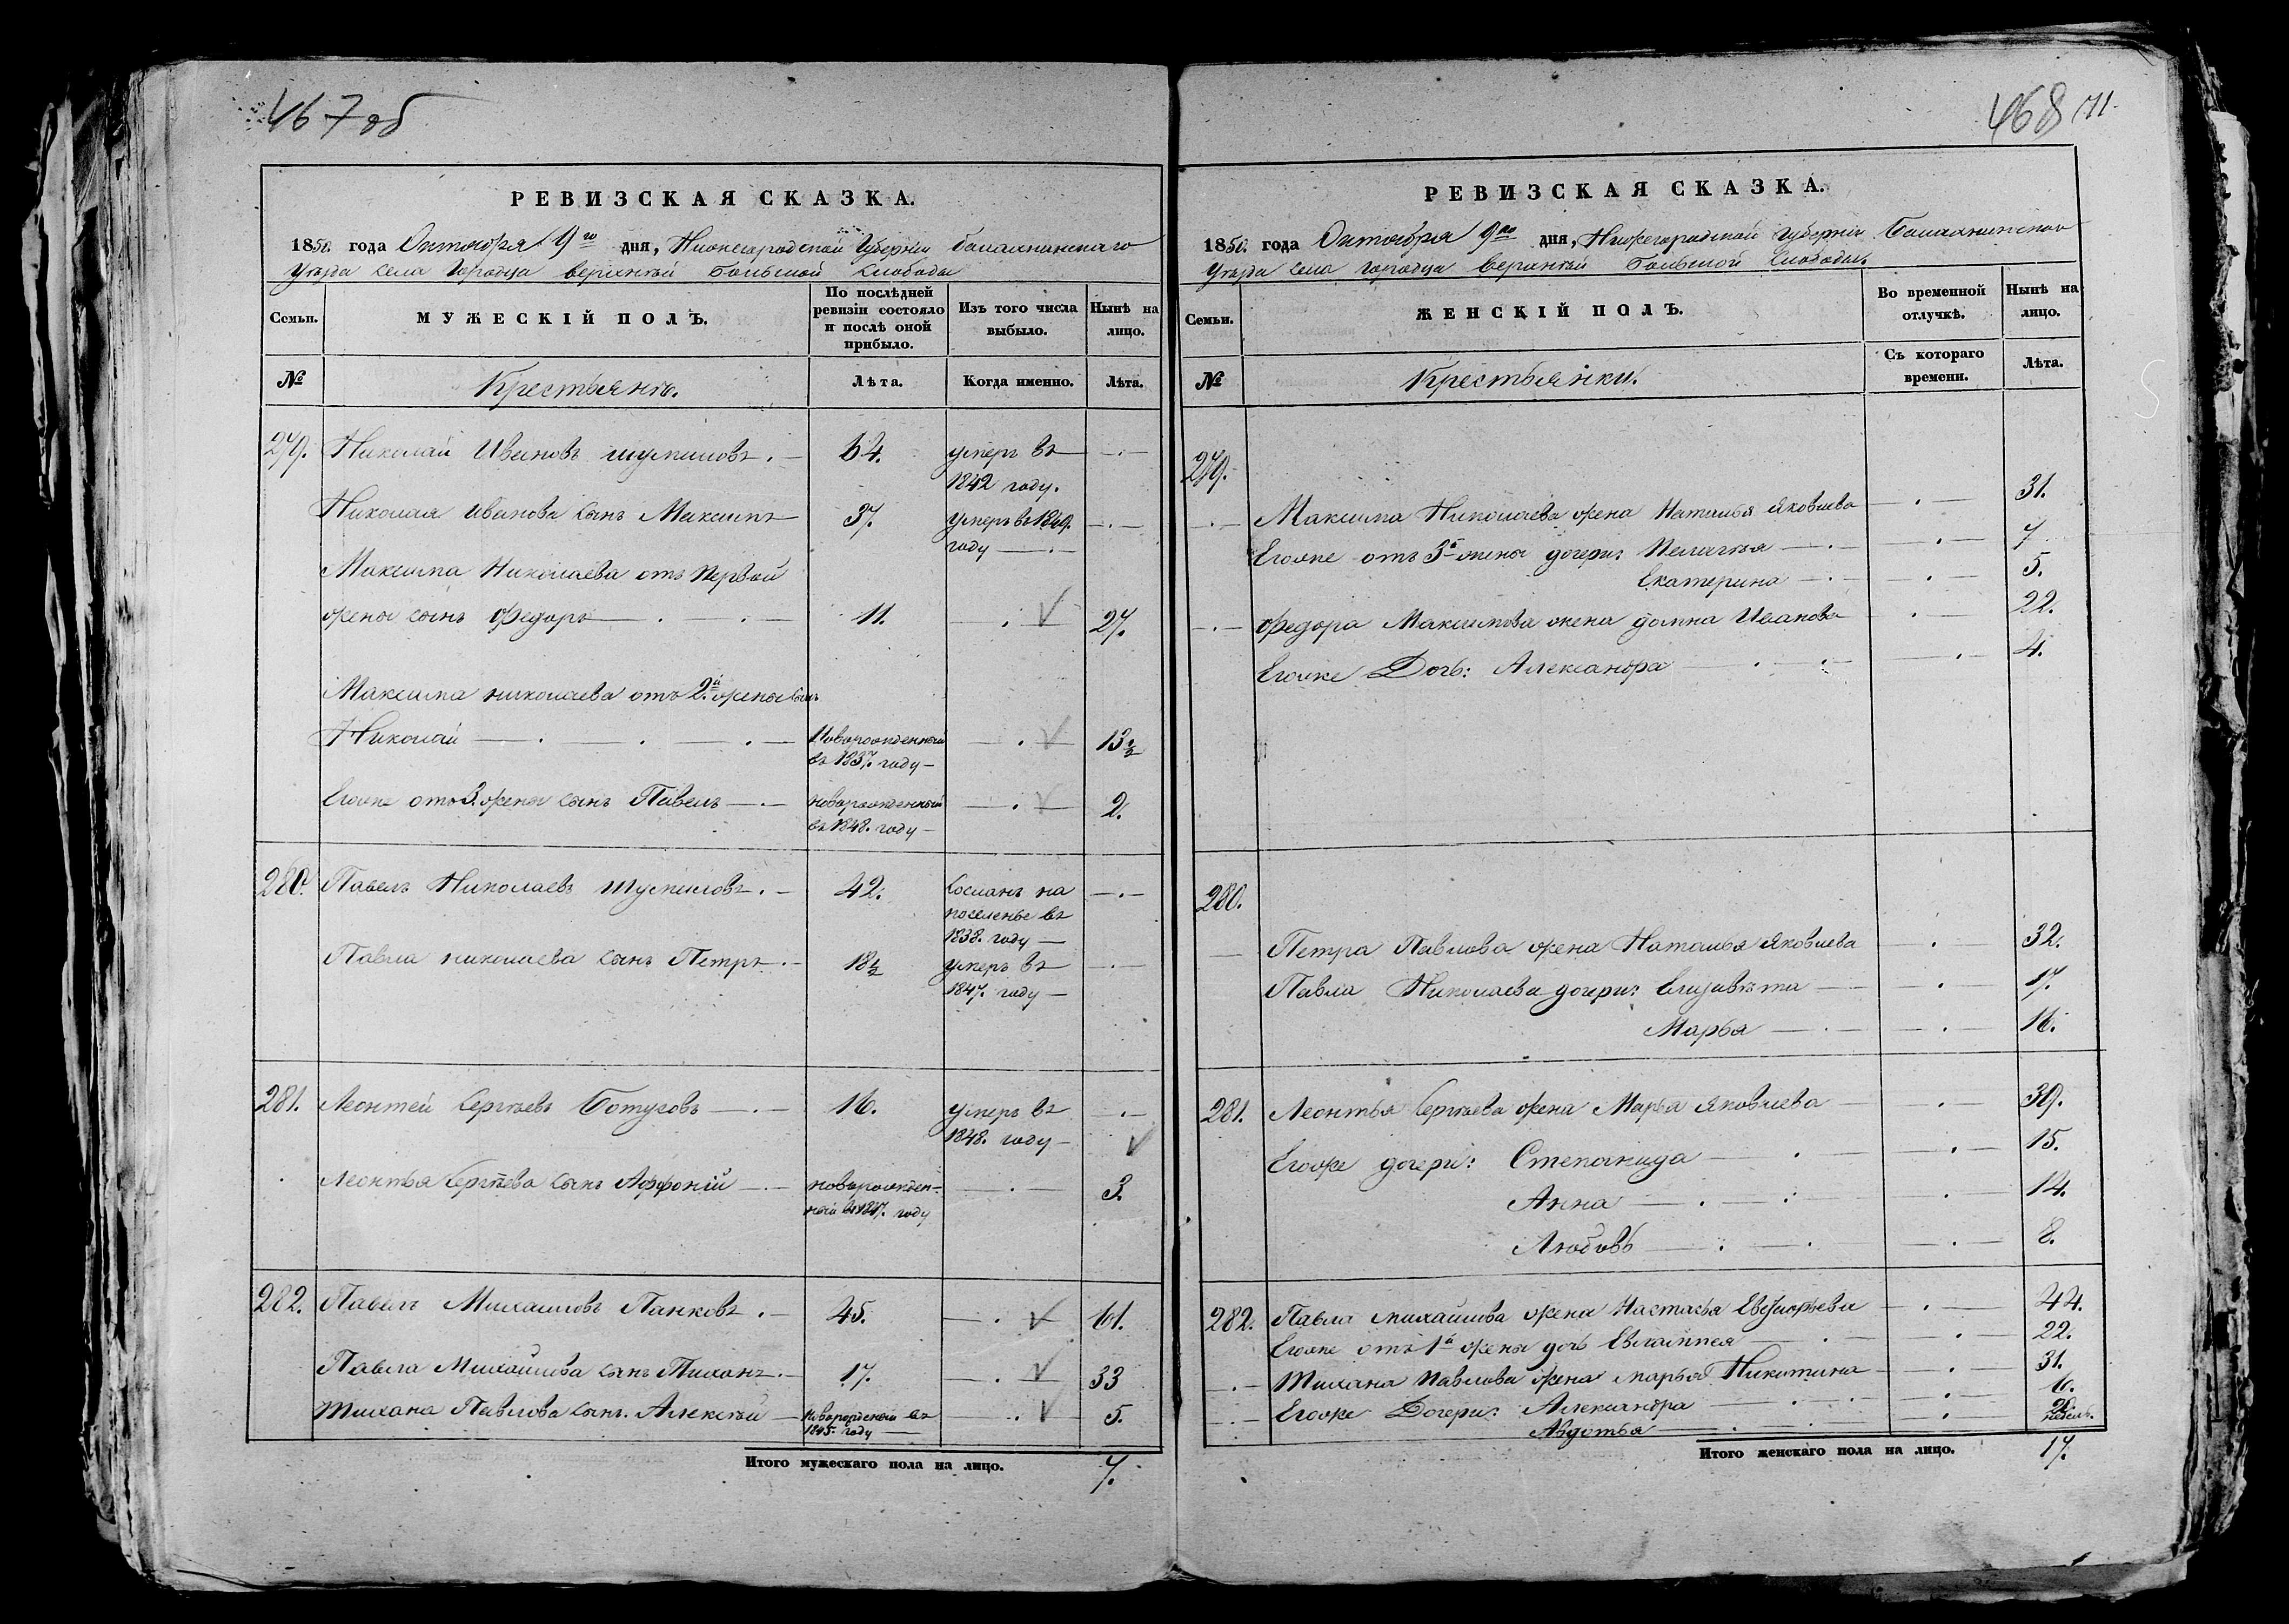 467об
РЕВИЗСКАЯ СКАЗКА.
1850. года Октября 9го дня, Нижегородской Губернии Балахнинскаго
Уѣзда села Городца верхней Большой слободы
Семьи.
МУЖЕСКІЙ ПОЛЪ.
По послѣдней ревизіи состояло и послѣ оной прибыло.
Изъ того числа выбыло.
Нынѣ на лицо.
№
Крестьяне.
Лѣта.
Когда именно.
Лѣта.
279. Николай Ивановъ Шумиловъ 64. умеръ въ
1842 году.
Николая Иванова сынъ Максимъ 37. умеръ въ 1849.
году
Максима Николаева отъ первой
жены сынъ Федоръ 11. 27.
Максима Николаева отъ 2й жены сынъ
Николай Новорожденный 13½
въ 1837. году
Егоже отъ 3. жены сынъ Павелъ новорожденный 2.
въ 1848. году
280. Павелъ Николаевъ Шумиловъ 42. Сосланъ на
поселенье въ
1838. году
Павла Николаева сынъ Петръ 18½ умеръ въ
1847. году
281. Леонтей Сергѣевъ Ботусовъ 16. умеръ въ
1848. году
Леонтья Сергѣева сынъ Аффоній новорожден- 3.
ный въ 1847. году
282. Павелъ Михаиловъ Панковъ 45. 61.
Павла Михайлова сынъ Тиханъ 17. 33
Тихана Павлова сынъ Алексѣй новорожденый въ 5.
1845. году
Итого мужескаго пола на лицо. 7.
468 171.
РЕВИЗСКАЯ СКАЗКА.
1850. года Октября 9го дня, Нижегородской губерніи Балахнинскаго
Уѣзда села Городца верхней Большой Слободы
Семьи.
ЖЕНСКІЙ ПОЛЪ.
Во временной отлучкѣ.
Нынѣ на лицо.
№
Крестьянки.
Съ котораго времени.
Лѣта.
279.
Максима Николаева жена Наталья Яковлева 31.
Егоже отъ 3й жены дочери: Пелагея 7
Екатерина 5.
Федора Максимова жена Домна Иванова 22.
Егоже Дочь: Александра 4.
280.
Петра Павлова жена Наталья Яковлева 32.
Павла Николаева дочери: Елизавѣта 17.
Марья 16.
281. Леонтья Сергѣева жена Марья Яковлева 39.
Егоже дочери: Степанида 15.
Анна 14.
Любовь 8.
282. Павла Михайлова жена Настасья 44.
Егоже отъ 1й жены дочь Евлампея 22.
Тихана Павлова жена Марья Никитина 31.
Егоже Дочери: Александра 10.
Авдотья недель.
Итого женскаго пола на лицо. 17.